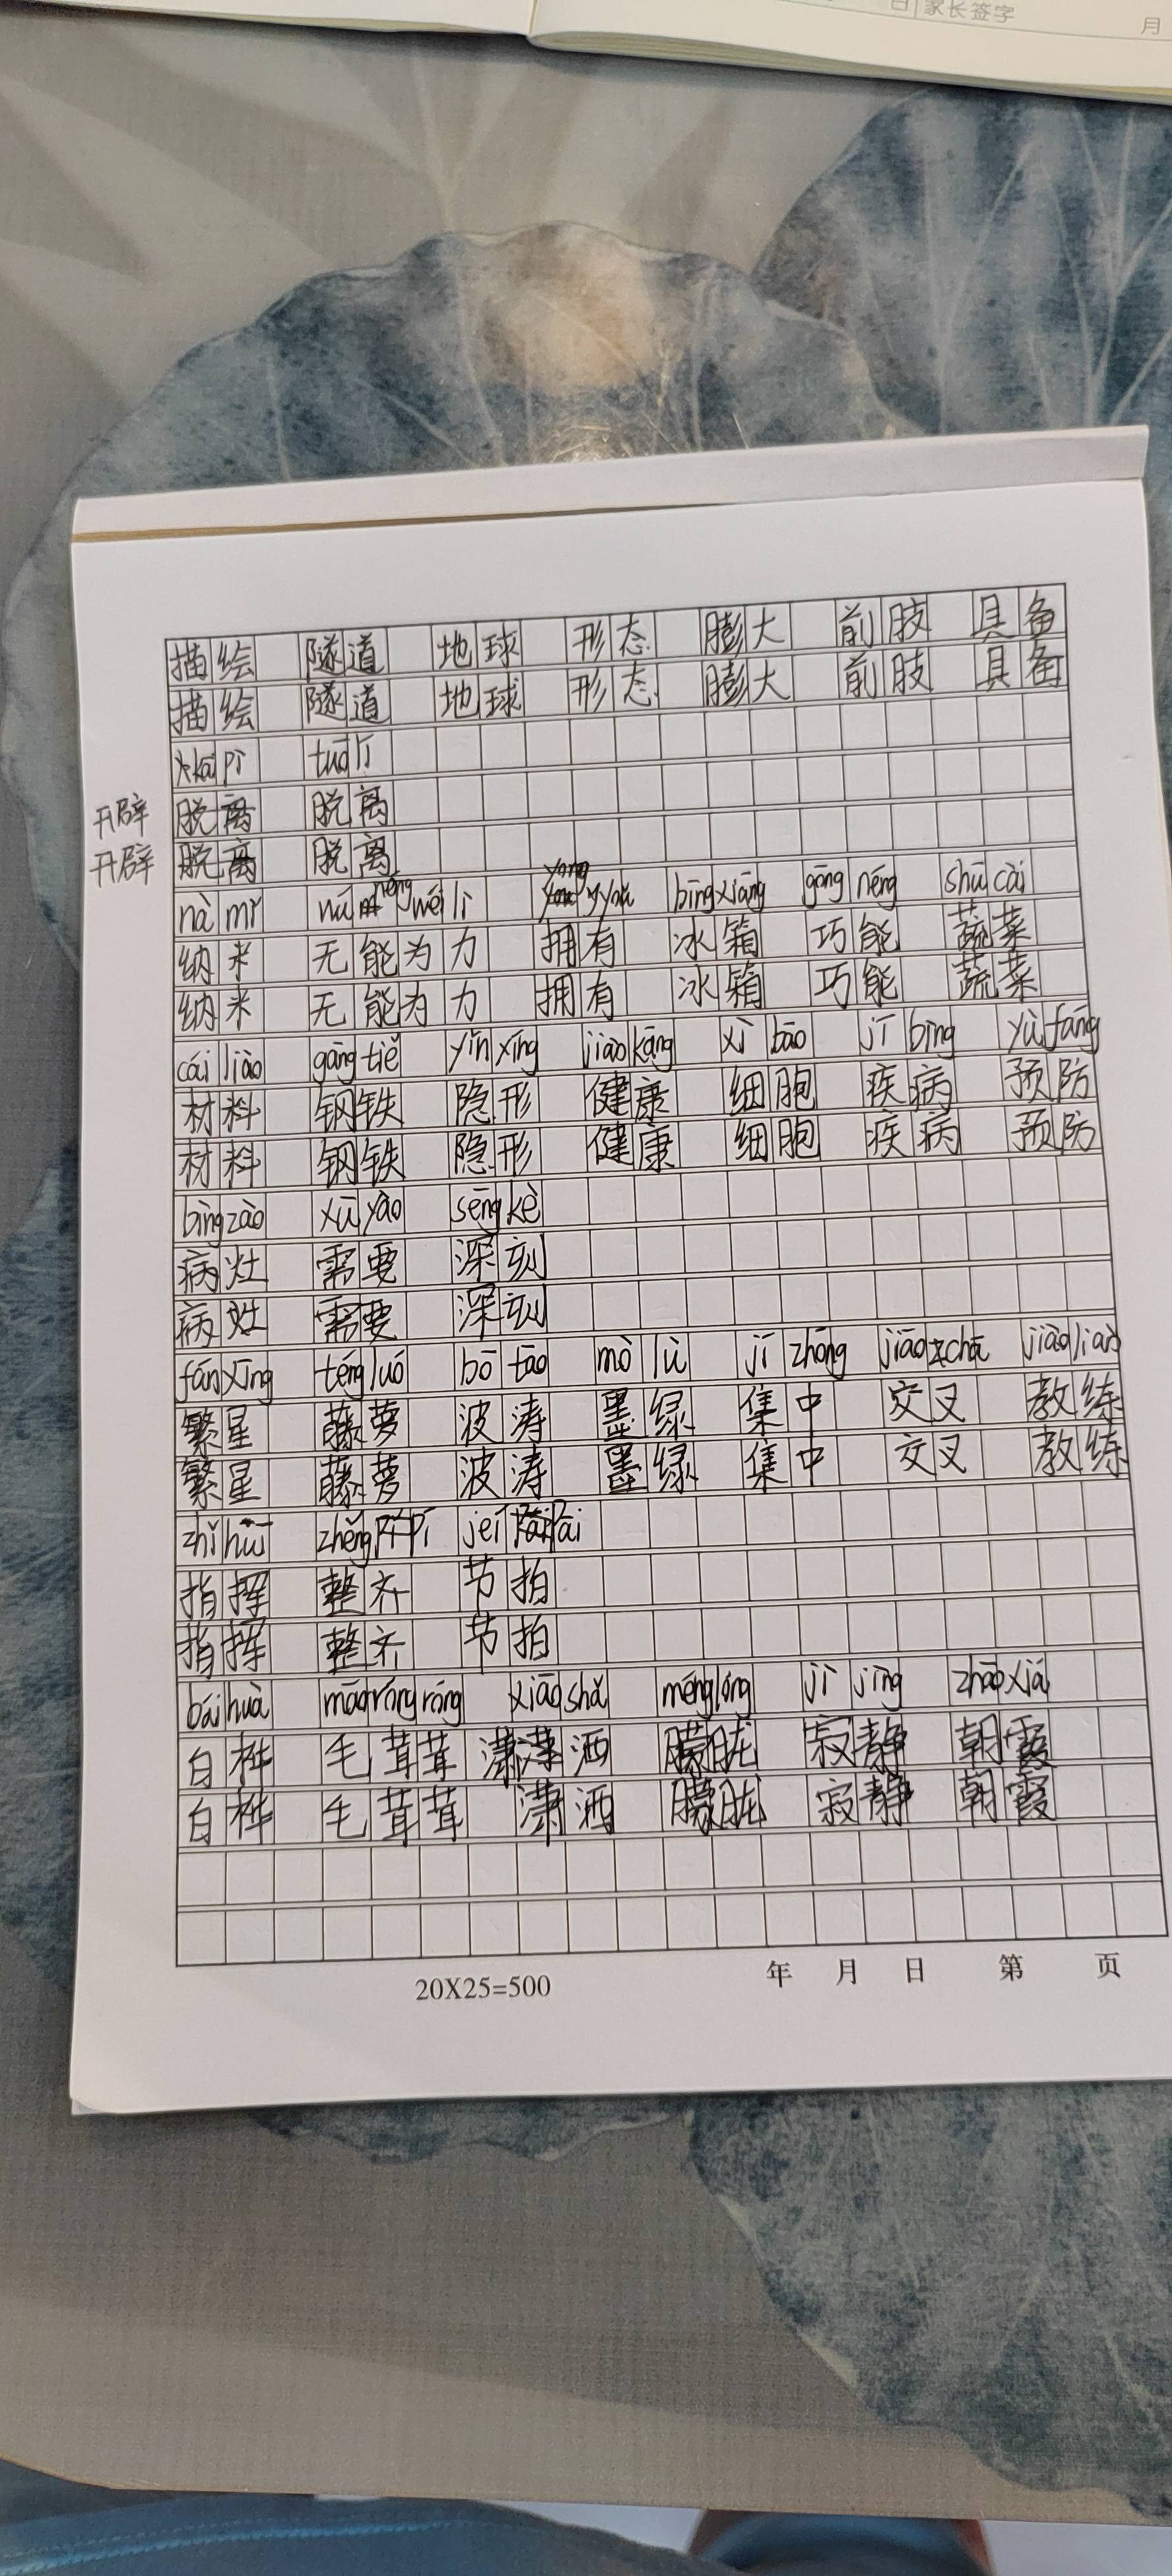 日 家长签字 月
描绘 隧道 地球 形态 膨大 前肢 具备
描绘 隧道 地球 形态 膨大 前肢 具备
kāi pì tuō lí
开辟 脱离 脱离
开辟 脱离 脱离
nà mǐ néng wéi lì bīng xiāng gōng néng shū cài
纳米 无能为力 拥有 冰箱 巧能 蔬菜
纳米 无能为力 拥有 冰箱 巧能 蔬菜
cái liào gāng tiě yǐn xíng jiào kāng xì bāo jí bìng yù fáng
材料 钢铁 隐形 健康 细胞 疾病 预防
材料 钢铁 隐形 健康 细胞 疾病 预防
bìng zào xū yào sēng kè
病灶 需要 深刻
病灶 需要 深刻
fán xīng téng luó bō tāo mò lǜ jí zhōng jiāo chā jiào liàn
繁星 藤萝 波涛 墨绿 集中 交叉 教练
繁星 藤萝 波涛 墨绿 集中 交叉 教练
zhǐ huī zhěng pí jeí pāi
指挥 整齐 节拍
指挥 整齐 节拍
bái huà máo róng róng xiāo shǎ méng lóng jì jìng zhāo xiá
白桦 毛茸茸 潇洒 朦胧 寂静 朝霞
白桦 毛茸茸 潇洒 朦胧 寂静 朝霞
20X25=500 年 月 日 第 页